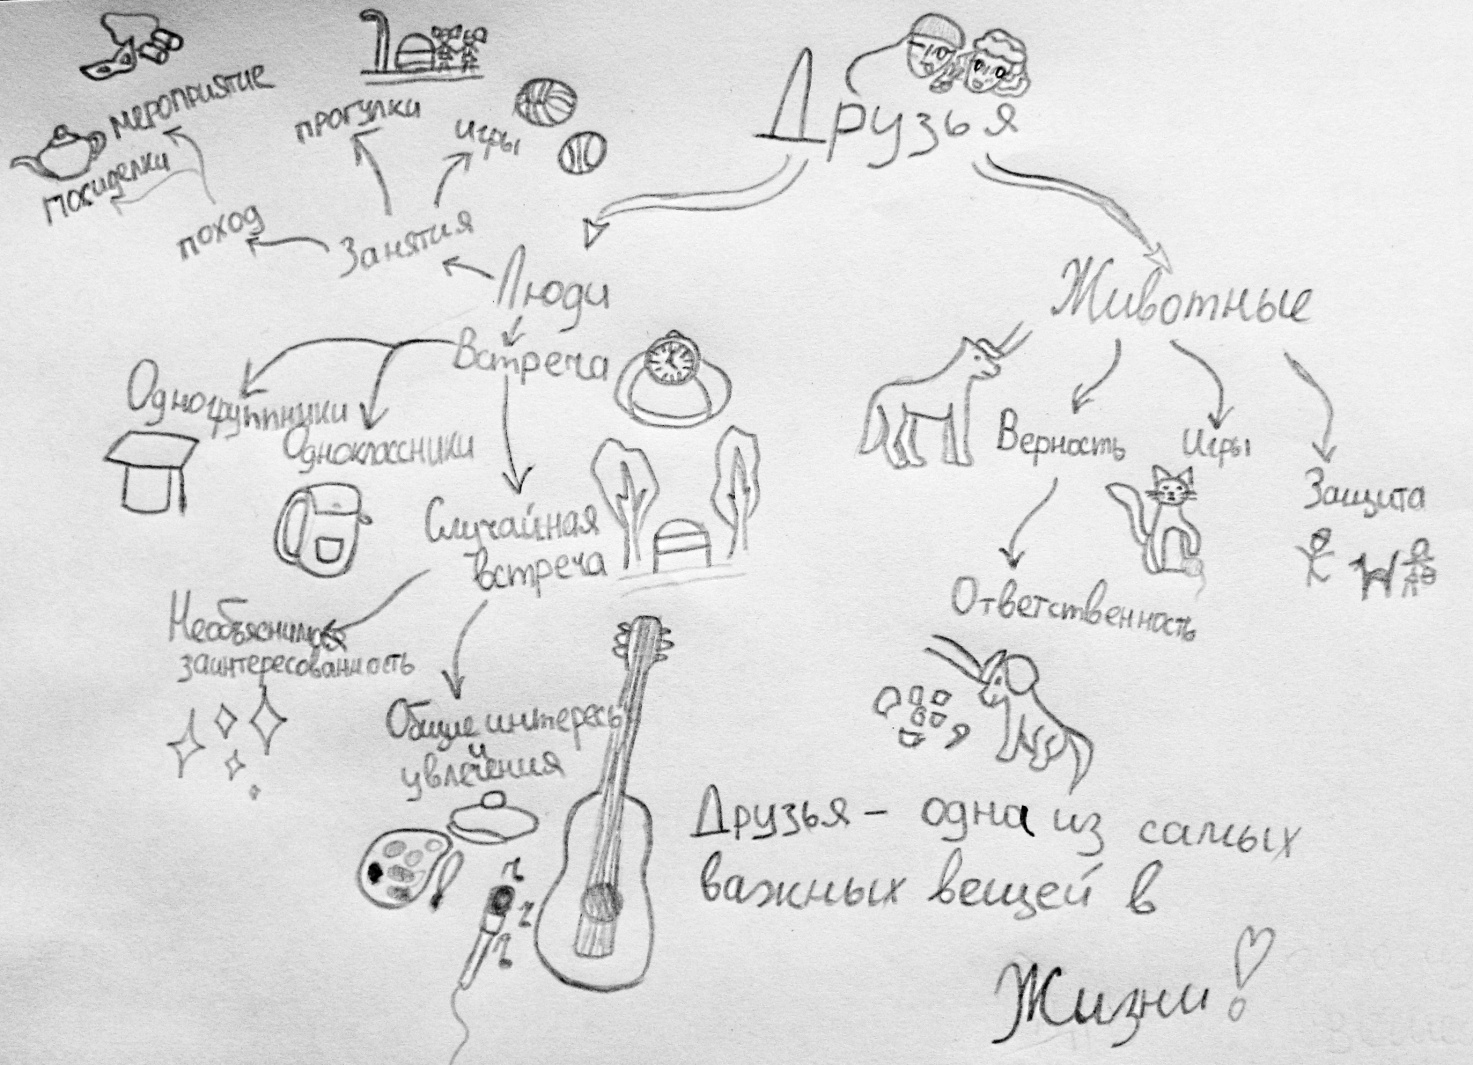 Друзья
мероприятие
посиделки
поход
прогулки
игры
Занятия
Люди
Встреча
Одногруппники
Одноклассники
Случайная
встреча
Необъяснимая
заинтересованность
Общие интересы
и
увлечения
Животные
Верность
Игры
Защита
Ответственность
Друзья - одна из самых
важных вещей в
Жизни!